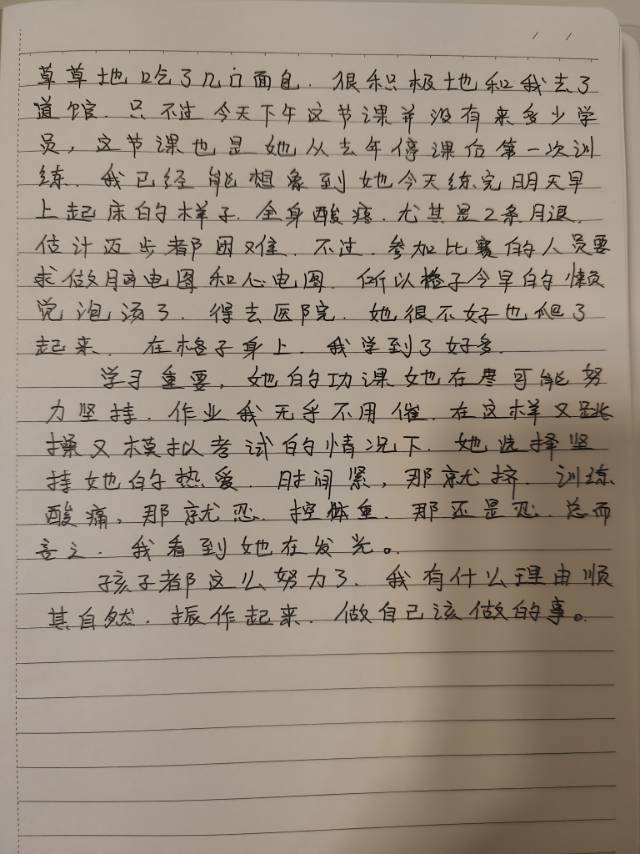 草草地吃了几口面包.很积极地和我去了
道馆.只不过今天下午这节课并没有来多少学
员,这节课也是她从去年停课后第一次训
练.我已经能想象到她今天练完明天早
上起床的样子.全身酸痛.尤其是2条月退.
估计迈步都困难.不过.参加比赛的人员要
求做脑电图和心电图.所以格子今早的懒
觉泡汤了.得去医院.她很不好也爬了
起来.在格子身上.我学到了好多.
学习重要,她的功课她在尽可能努
力坚持.作业我无乎不用催.在这样又跳
操又模拟考试的情况下.她选择坚
持她的热爱.时间紧,那就挤.训练
酸痛,那就忍.控体重.那还是忍.总而
言之.我看到她在发光。
孩子都这么努力了.我有什么理由顺
其自然.振作起来.做自己该做的事。